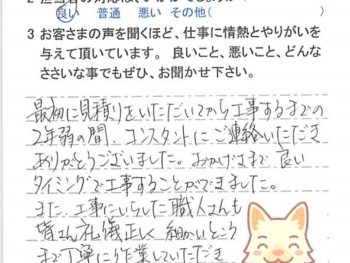 良い　普通　悪い　その他(　　　)
3 お客さまの声を聞くほど、仕事に情熱とやりがいを
与えて頂いています。 良いこと、悪いこと、どんな
ささいな事でもぜひ、お聞かせ下さい。
最初に見積りをいただいてから工事するまでの
2年弱の間、コンスタントにご連絡いただき
ありがとうございました。おかげさまで良い
タイミングで工事することができました。
また、工事にいらした職人さんも
皆さん礼儀正しく細かいところ
まで丁寧に作業していただき